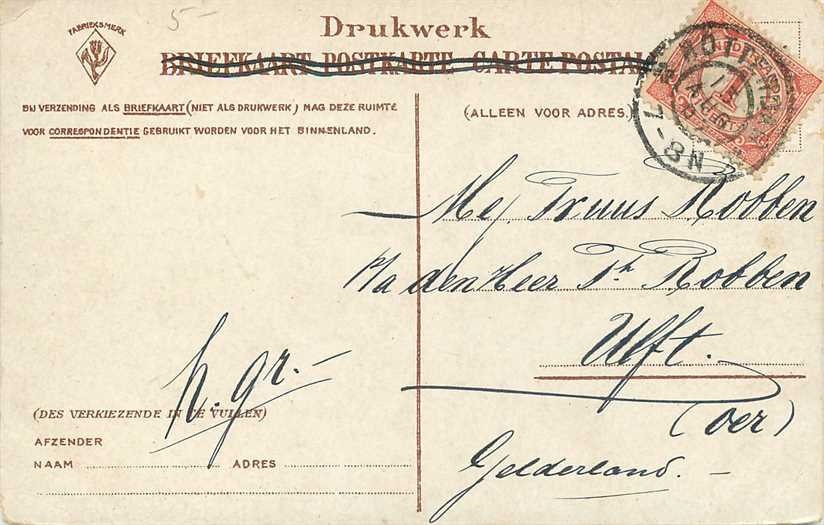 5-
FABRIEKSMERK
Drukwerk
BRIEFKAART POSTKARTE - CARTE POSTAL
BIJ VERZENDING ALS BRIEFKAART (NIET ALS DRUKWERK) MAG DEZE RUIMTE
VOOR CORRESPONDENTIE GEBRUIKT WORDEN VOOR HET BINNENLAND.
(ALLEEN VOOR ADRES.)
7-8N
Mej Truus Robben
P/a den Heer Th Robben
Ulft.
(oer)
Gelderland. -
h. gr. -
(DES VERKIEZENDE IN TE VULLEN)
AFZENDER
NAAM ADRES